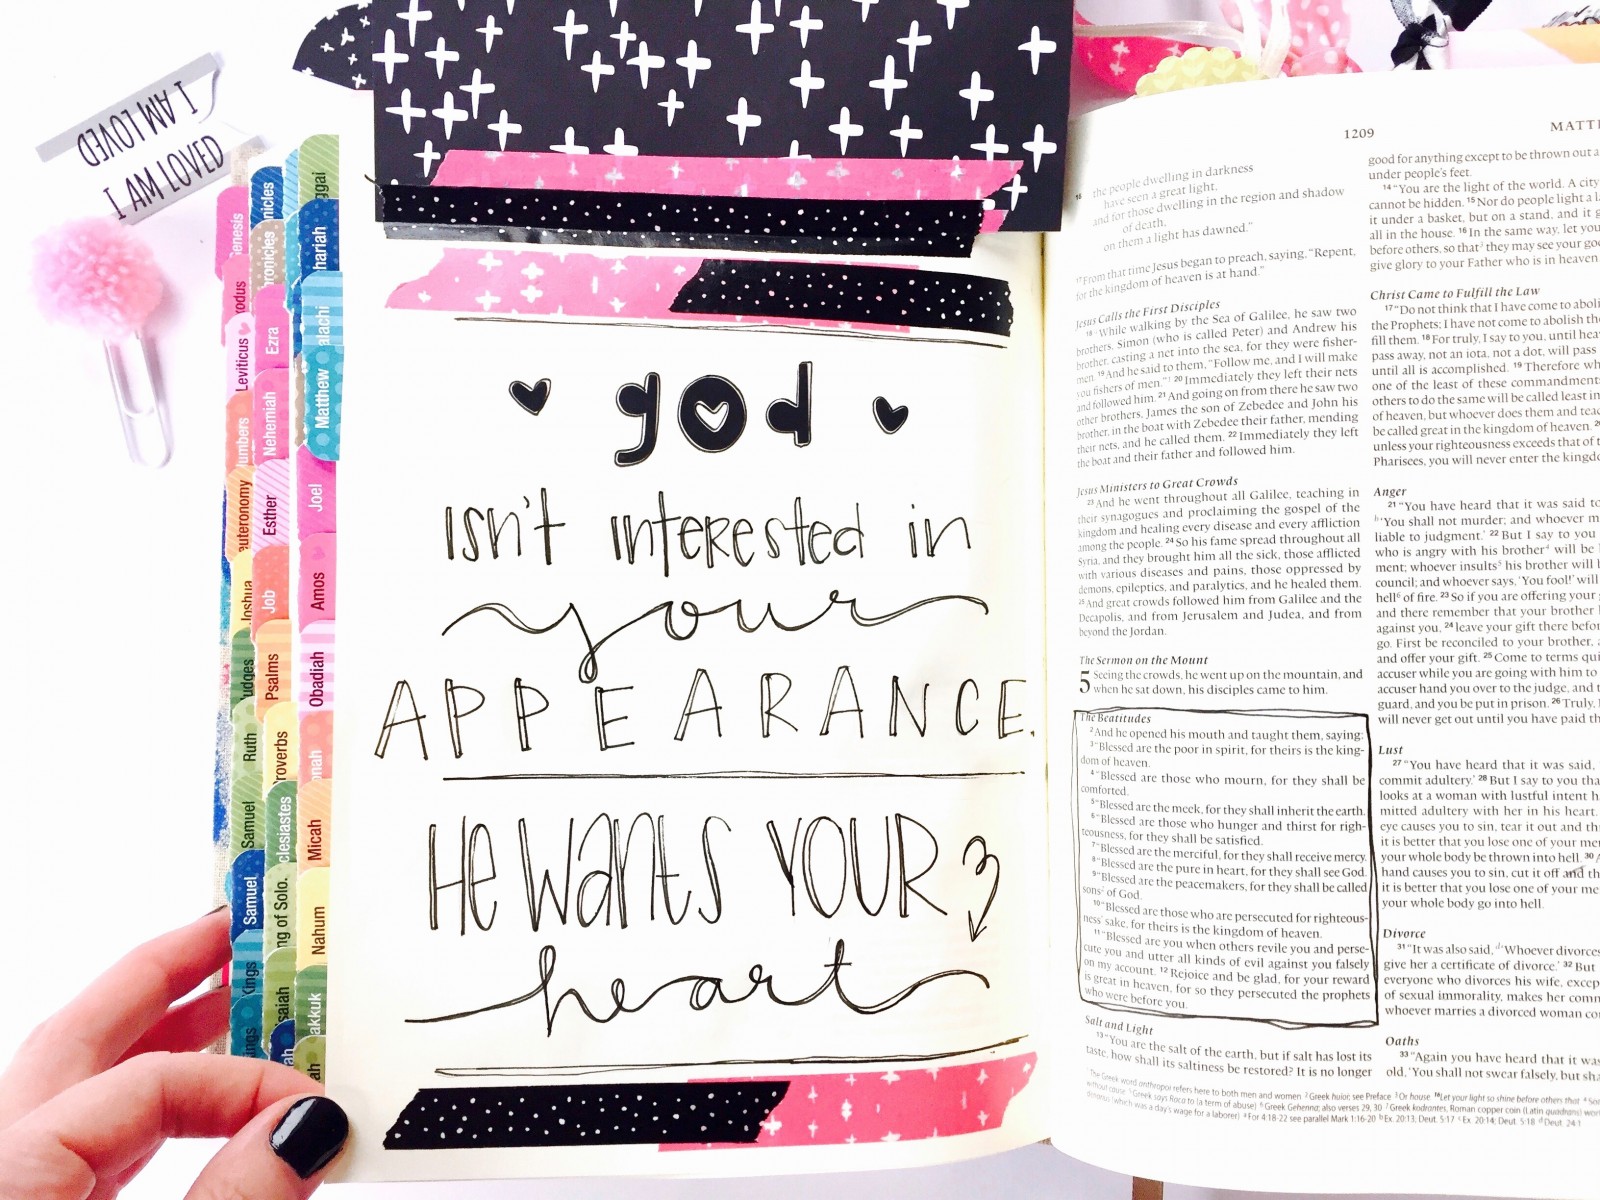 I AM LOVED
I AM LOVED
Leviticus
Joshua
Ruth
Samuel
Samuel
Ezra
Nehemiah
Esther
Job
Psalms
Matthew
Joel
Amos
Obadiah
Micah
Nahum
god
isn't interested in
your
APPEARANCE.
He wants YOUR
heart
1209
the people dwelling in darkness
have seen a great light,
and for those dwelling in the region and shadow
of death,
on them a light has dawned."
17 From that time Jesus began to preach, saying, "Repent,
for the kingdom of heaven is at hand."
Jesus Calls the First Disciples
18 While walking by the Sea of Galilee, he saw two
brothers, Simon (who is called Peter) and Andrew his
brother, casting a net into the sea, for they were fisher-
men. 19 And he said to them, "Follow me, and I will make
you fishers of men." 20 Immediately they left their nets
and followed him. 21 And going on from there he saw two
other brothers, James the son of Zebedee and John his
brother, in the boat with Zebedee their father, mending
their nets, and he called them. 22 Immediately they left
the boat and their father and followed him.
Jesus Ministers to Great Crowds
23 And he went throughout all Galilee, teaching in
their synagogues and proclaiming the gospel of the
kingdom and healing every disease and every affliction
among the people. 24 So his fame spread throughout all
Syria, and they brought him all the sick, those afflicted
with various diseases and pains, those oppressed by
demons, epileptics, and paralytics, and he healed them.
25 And great crowds followed him from Galilee and the
Decapolis, and from Jerusalem and Judea, and from
beyond the Jordan.
The Sermon on the Mount
5 Seeing the crowds, he went up on the mountain, and
when he sat down, his disciples came to him.
The Beatitudes
2 And he opened his mouth and taught them, saying:
3 "Blessed are the poor in spirit, for theirs is the king-
dom of heaven.
4 "Blessed are those who mourn, for they shall be
comforted.
5 "Blessed are the meek, for they shall inherit the earth.
6 "Blessed are those who hunger and thirst for righ-
teousness, for they shall be satisfied.
7 "Blessed are the merciful, for they shall receive mercy.
8 "Blessed are the pure in heart, for they shall see God.
9 "Blessed are the peacemakers, for they shall be called
sons of God.
10 "Blessed are those who are persecuted for righteous-
ness' sake, for theirs is the kingdom of heaven.
11 "Blessed are you when others revile you and perse-
cute you and utter all kinds of evil against you falsely
on my account. 12 Rejoice and be glad, for your reward
is great in heaven, for so they persecuted the prophets
who were before you.
Salt and Light
13 "You are the salt of the earth, but if salt has lost its
taste, how shall its saltiness be restored? It is no longer
good for anything except to be thrown out
under people's feet.
14 "You are the light of the world. A city
cannot be hidden. 15 Nor do people light a
it under a basket, but on a stand, and it
all in the house. 16 In the same way, let
before others, so that they may see your
give glory to your Father who is in heaven.
Christ Came to Fulfill the Law
17 "Do not think that I have come to
the Prophets; I have not come to abolish
fill them. 18 For truly, I say to you, until
pass away, not an iota, not a dot, will pass
until all is accomplished. 19 Therefore
one of the least of these commandments
others to do the same will be called least in
of heaven, but whoever does them and
be called great in the kingdom of heaven.
unless your righteousness exceeds that of
Pharisees, you will never enter the
Anger
21 "You have heard that it was said to
'You shall not murder; and whoever
liable to judgment.' 22 But I say to you
who is angry with his brother will be
ment; whoever insults his brother will
council; and whoever says, 'You fool!' will
hell of fire. 23 So if you are offering your
and there remember that your brother
against you, 24 leave your gift there
go. First be reconciled to your brother,
and offer your gift. 25 Come to terms
accuser while you are going with him to
accuser hand you over to the judge, and
guard, and you be put in prison. 26 Truly,
will never get out until you have paid
Lust
27 "You have heard that it was said,
commit adultery.' 28 But I say to you
looks at a woman with lustful intent
mitted adultery with her in his heart.
eye causes you to sin, tear it out and
it is better that you lose one of your
your whole body be thrown into hell. 30
hand causes you to sin, cut it off and
it is better that you lose one of your
your whole body go into hell.
Divorce
31 "It was also said, 'Whoever divorces
give her a certificate of divorce.' 32 But
everyone who divorces his wife,
of sexual immorality, makes her
whoever marries a divorced woman
Oaths
33 "Again you have heard that it was
old, 'You shall not swear falsely, but